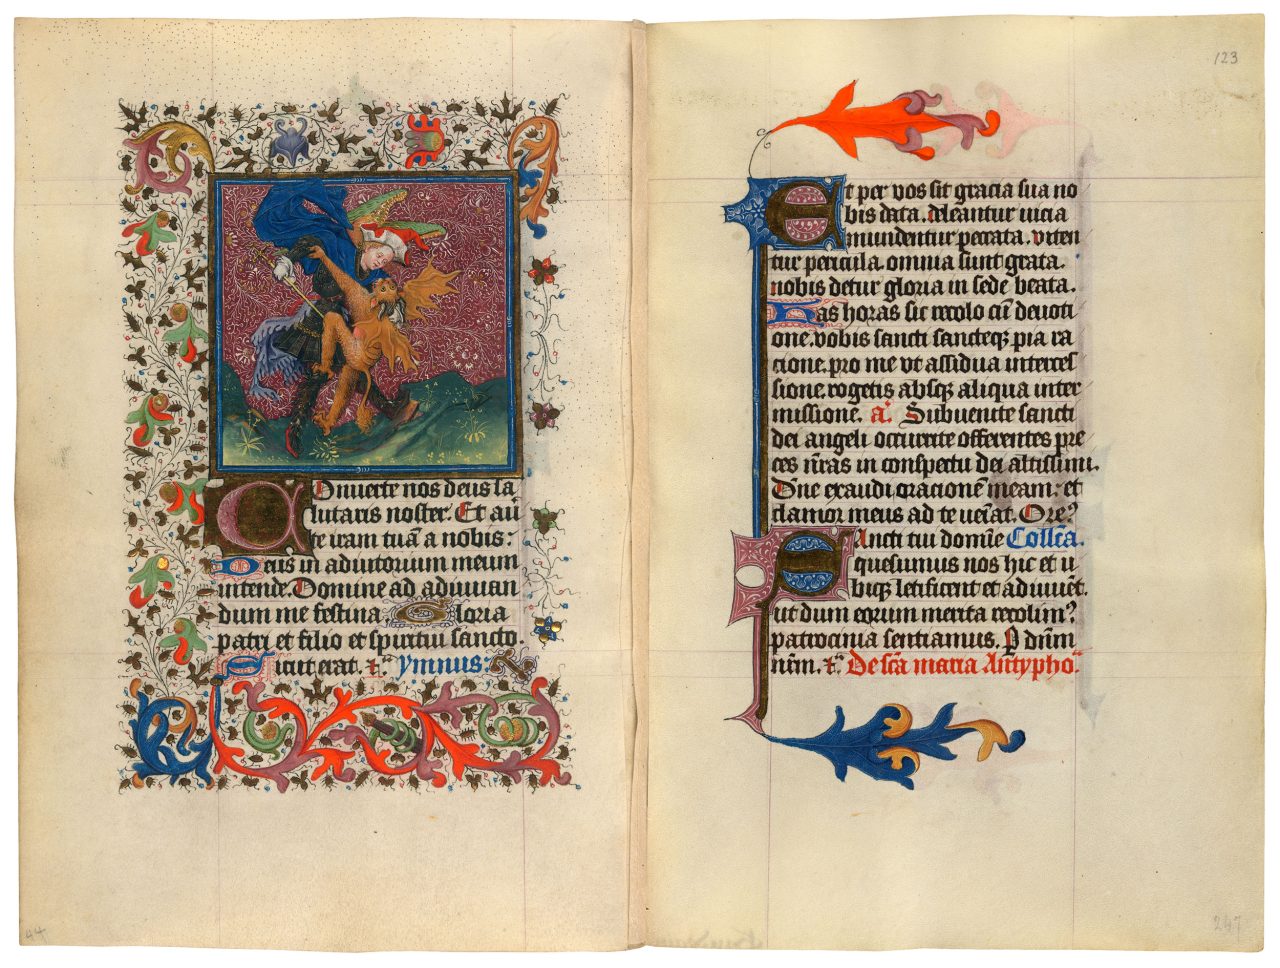 Conuerte nos deus sa
lutaris noster. Et au̅
te iram tua̅ a nobis:
Deus in adiutorium meum
intende. Domine ad adiuuan
dum me festina Gloria
patri et filio et spiritui sancto.
Sicut erat. Ymnus:
123
Et per vos sit gracia sua no
bis data. deleantur uicia
mundentur peccata. viten
tur pericula. omnia sunt grata.
nobis detur gloria in sede beata.
Has horas sic recolo cu̅ deuoti
one. vobis sancti sancteq̅ pia ra
cione. pro me vt assidua interces
sione. rogetis absq̅ aliqua inter
missione. a. Subuenite sancti
dei angeli occurite offerentes pre
ces n̅ras in conspectu dei altissimi.
Dn̅e exaudi oracione̅ meam. et
clamor meus ad te ueniat. Ore?
Sancti tui domi̅e Coll̅ca.
quesumus nos hic et u
biq̅ letificent et adiuue̅t.
ut dum eorum merita recolim?
patrocinia sentiamus. P dn̅m
n̅rm. De sca̅ maria Antypho.
44
247